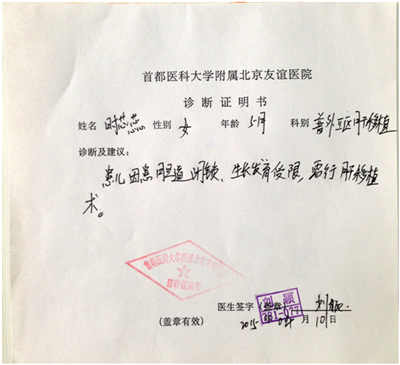 首都医科大学附属北京友谊医院
诊断证明书
姓名 时蕊蕊 性别 女 年龄 5月 科别 普外三区肝移植
诊断及建议:
患儿因患胆道闭锁、生长发育受限,需行肝移植
术。
医生签字(盖章) 刘颖
(盖章有效) 2015 年 月 10 日